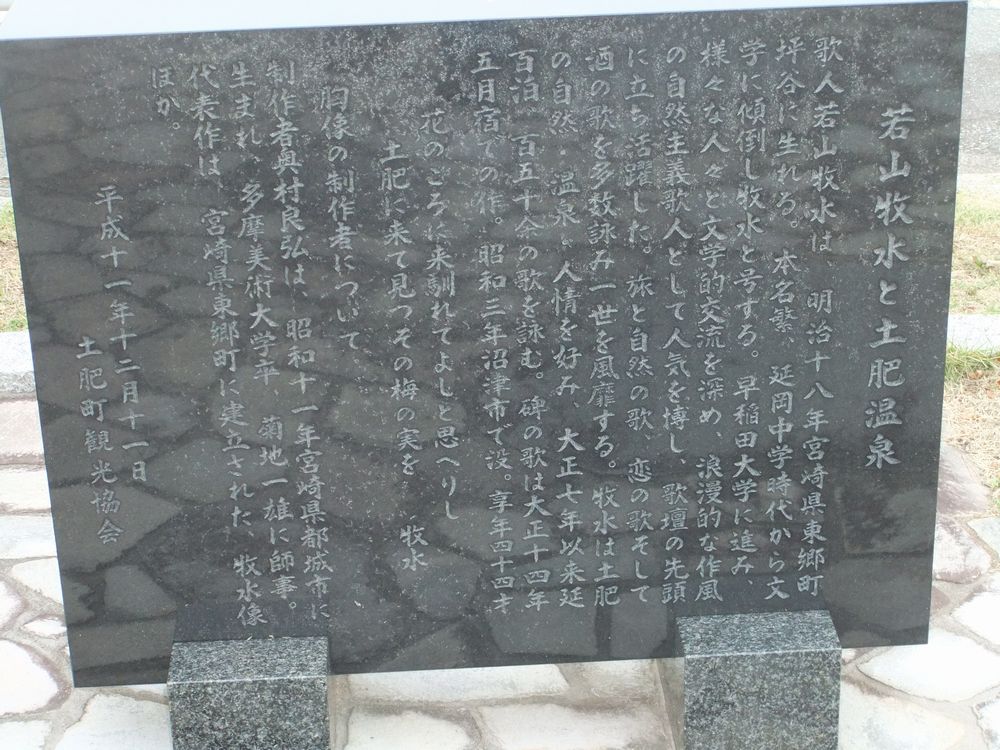 若山牧水と土肥温泉
歌人若山牧水は、明治十八年宮崎県東郷町
坪谷に生れる。本名繁、延岡中学時代から文
学に傾倒し牧水と号する。早稲田大学に進み、
様々な人々と文学的交流を深め、浪漫的な作風
の自然主義歌人として人気を博し、歌壇の先頭
に立ち活躍した。旅と自然の歌、恋の歌そして
酒の歌を多数詠み一世を風靡する。牧水は土肥
の自然・温泉・人情を好み、大正七年以来延
百泊一百五十余の歌を詠む。碑の歌は大正十四年
五月宿での作。昭和三年沼津市で没。享年四十四才
花のころに来馴れてよしと思へりし
土肥に来て見つその梅の実を　牧水
胸像の制作者について、
制作者奥村良弘は、昭和十一年宮崎県都城市に
生まれ、多摩美術大学卒　菊地一雄に師事。
代表作は、宮崎県東郷町に建立された　牧水像
ほか。
平成十一年十二月十一日
土肥町観光協会